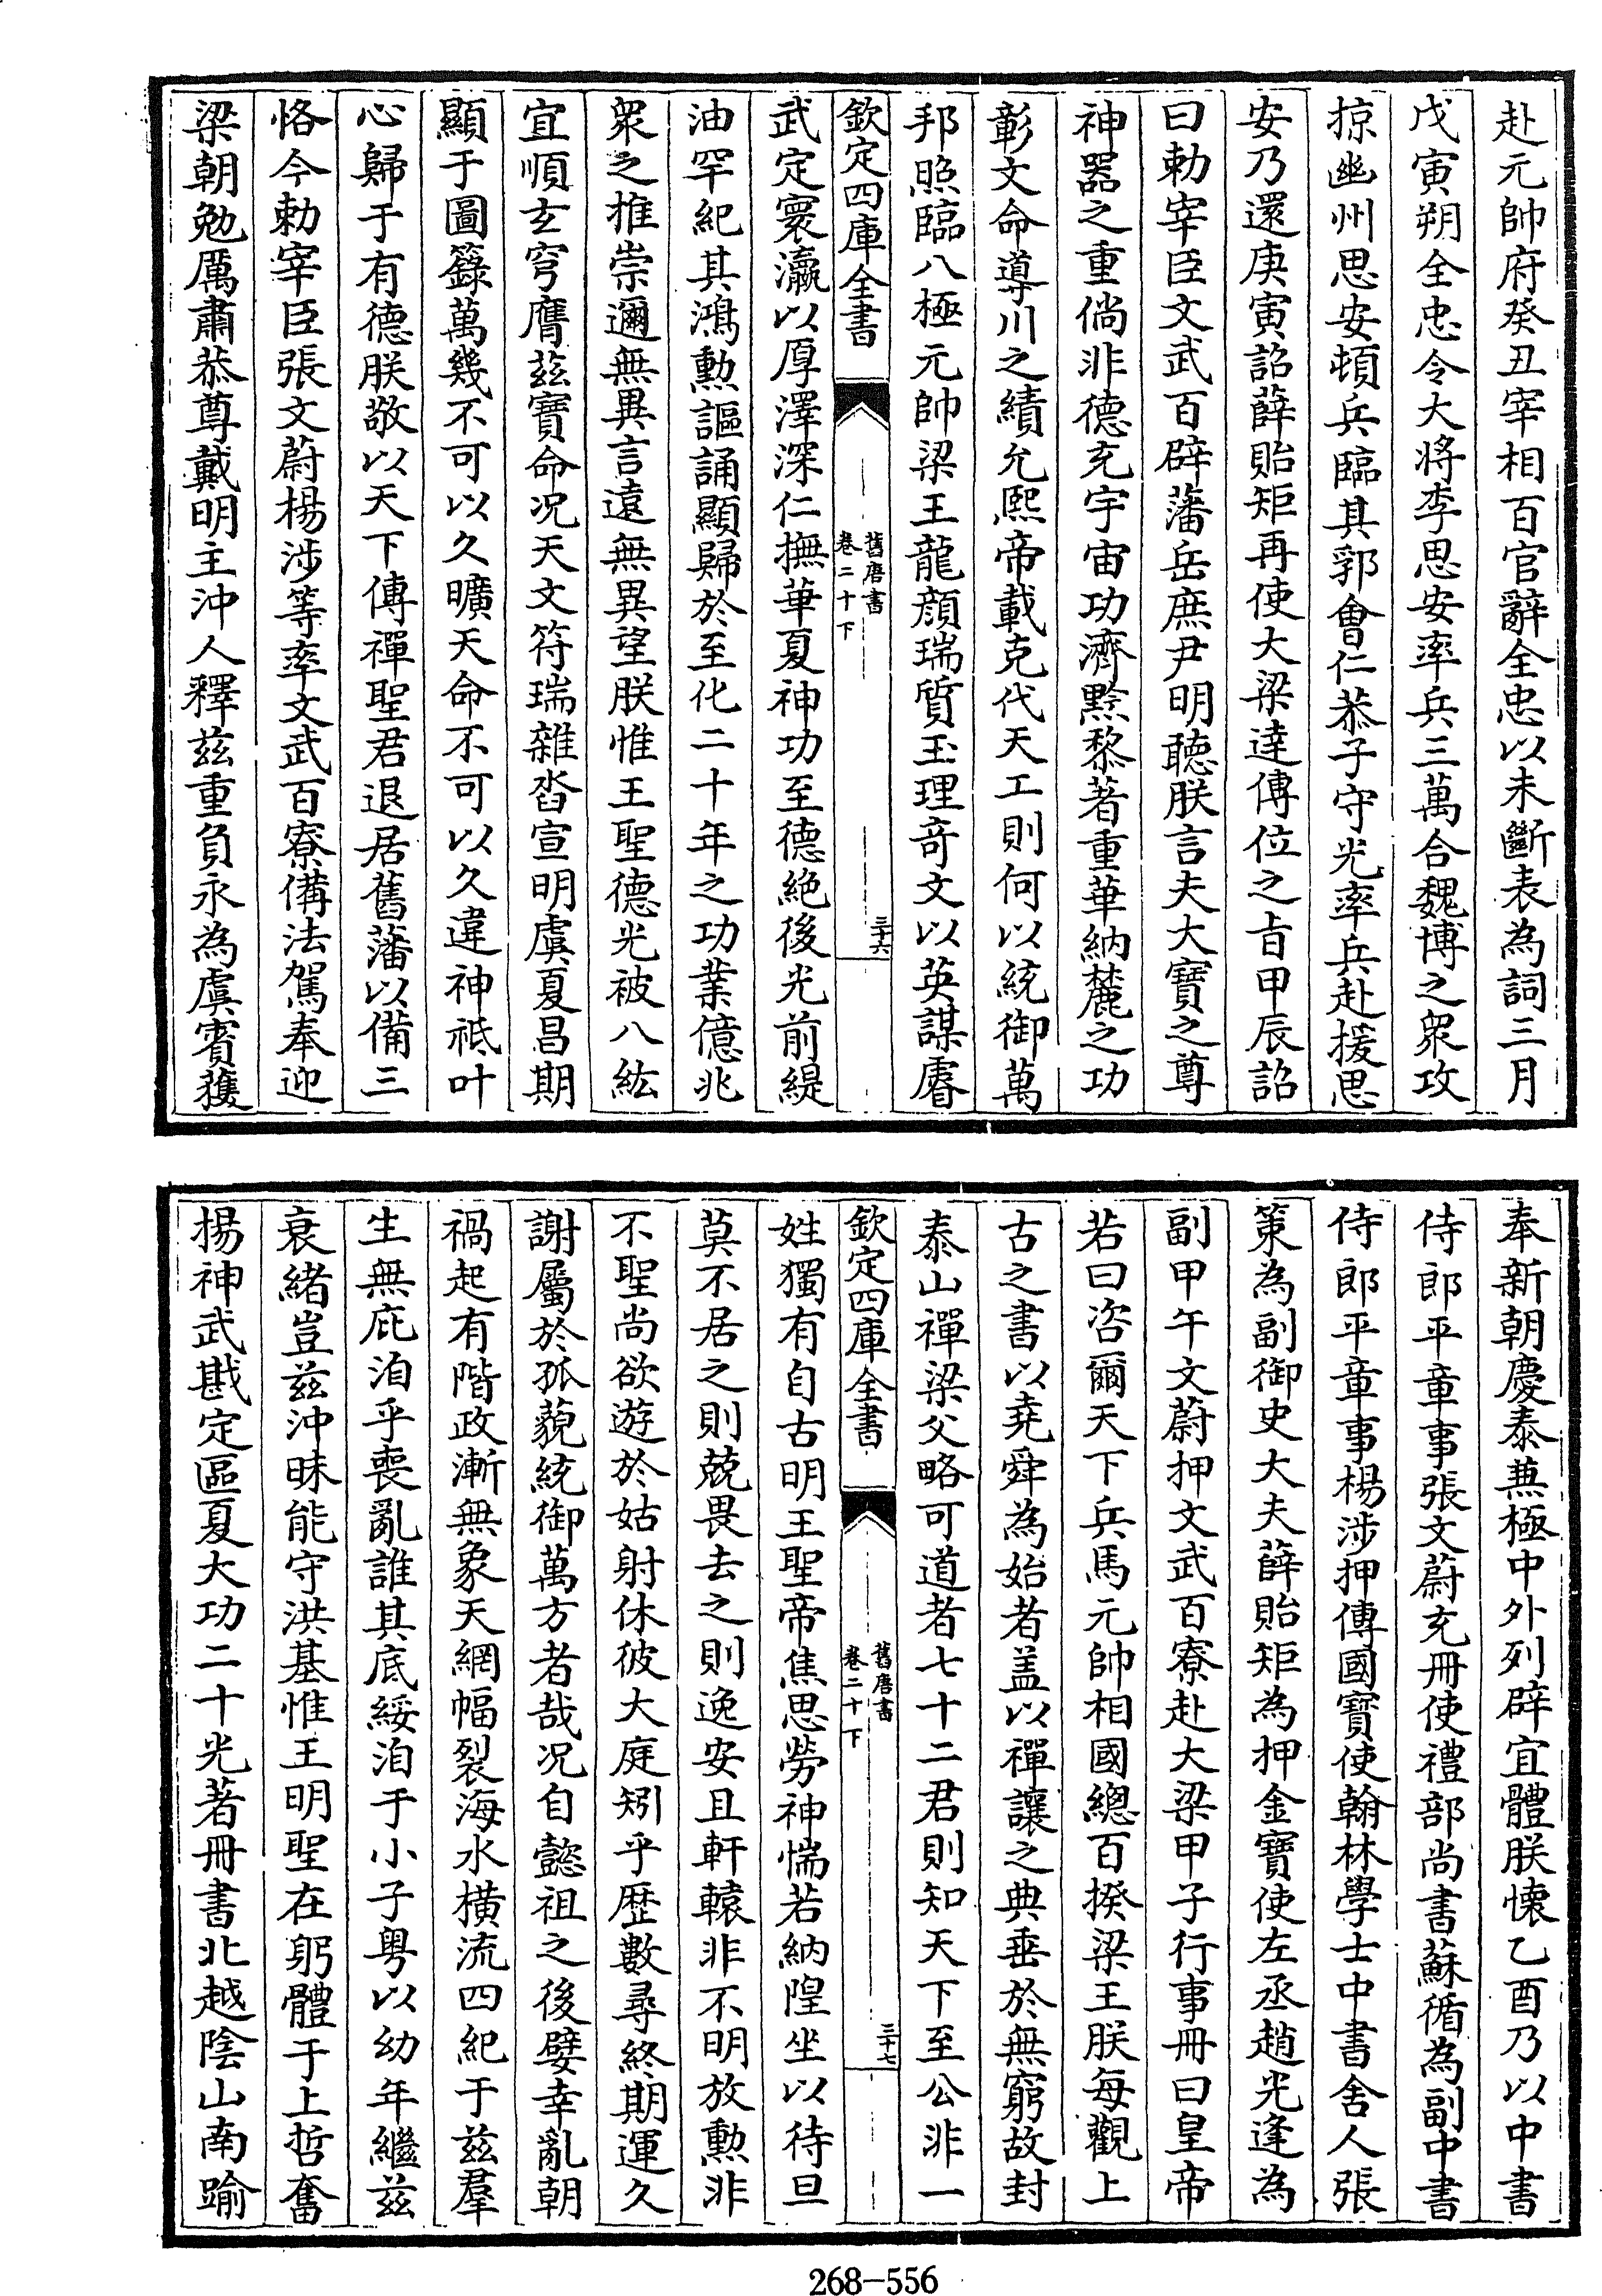 赴元帥府癸丑宰相百官辭全忠以未斷表為詞三月
戊寅朔全忠令大將李思安率兵三萬合魏博之衆攻
掠幽州思安頓兵臨其郛會仁恭子守光率兵赴援思
安乃還庚寅詔薛貽矩再使大梁達傳位之旨甲辰詔
曰勅宰臣文武百辟藩岳庶尹明聽朕言夫大寶之尊
神器之重倘非德充宇宙功濟黔黎著重華納麓之功
彰文命導川之績允熙帝載克代天工則何以統御萬
邦照臨八極元帥梁王龍顔瑞質玉理竒文以英謀睿
欽定四庫全書
舊唐書
卷二十下
三十六
武定寰瀛以厚澤深仁撫華夏神功至德絶後光前緹
油罕紀其鴻勲謳誦顯歸於至化二十年之功業億兆
衆之推崇邇無異言遠無異望朕惟王聖德光被八紘
宜順玄穹膺茲寶命况天文符瑞雜沓宣明虞夏昌期
顯于圖籙萬幾不可以久曠天命不可以久違神祗叶
心歸于有德朕敬以天下傳禪聖君退居舊藩以備三
恪今勅宰臣張文蔚楊涉等率文武百寮備法駕奉迎
梁朝勉厲肅恭尊戴明主沖人釋茲重負永為虞賓獲
奉新朝慶泰兼極中外列辟宜體朕懷乙酉乃以中書
侍郎平章事張文蔚充冊使禮部尚書蘇循為副中書
侍郎平章事楊涉押傳國寶使翰林學士中書舍人張
策為副御史大夫薛貽矩為押金寶使左丞趙光逢為
副甲午文蔚押文武百寮赴大梁甲子行事冊曰皇帝
若曰咨爾天下兵馬元帥相國總百揆梁王朕每觀上
古之書以堯舜為始者盖以禪讓之典垂於無窮故封
泰山禪梁父略可道者七十二君則知天下至公非一
欽定四庫全書
舊唐書
卷二十下
三十七
姓獨有自古明王聖帝焦思勞神惴若納隍坐以待旦
莫不居之則兢畏去之則逸安且軒轅非不明放勲非
不聖尚欲遊於姑射休彼大庭矧乎歴數尋終期運久
謝屬於孤藐統御萬方者哉况自懿祖之後嬖幸亂朝
禍起有階政漸無象天網幅裂海水横流四紀于茲羣
生無庇洎乎喪亂誰其底綏洎于小子粤以幼年繼茲
衰緒豈茲沖昧能守洪基惟王明聖在躬體于上哲奮
揚神武戡定區夏大功二十光著冊書北越陰山南踰
268-556